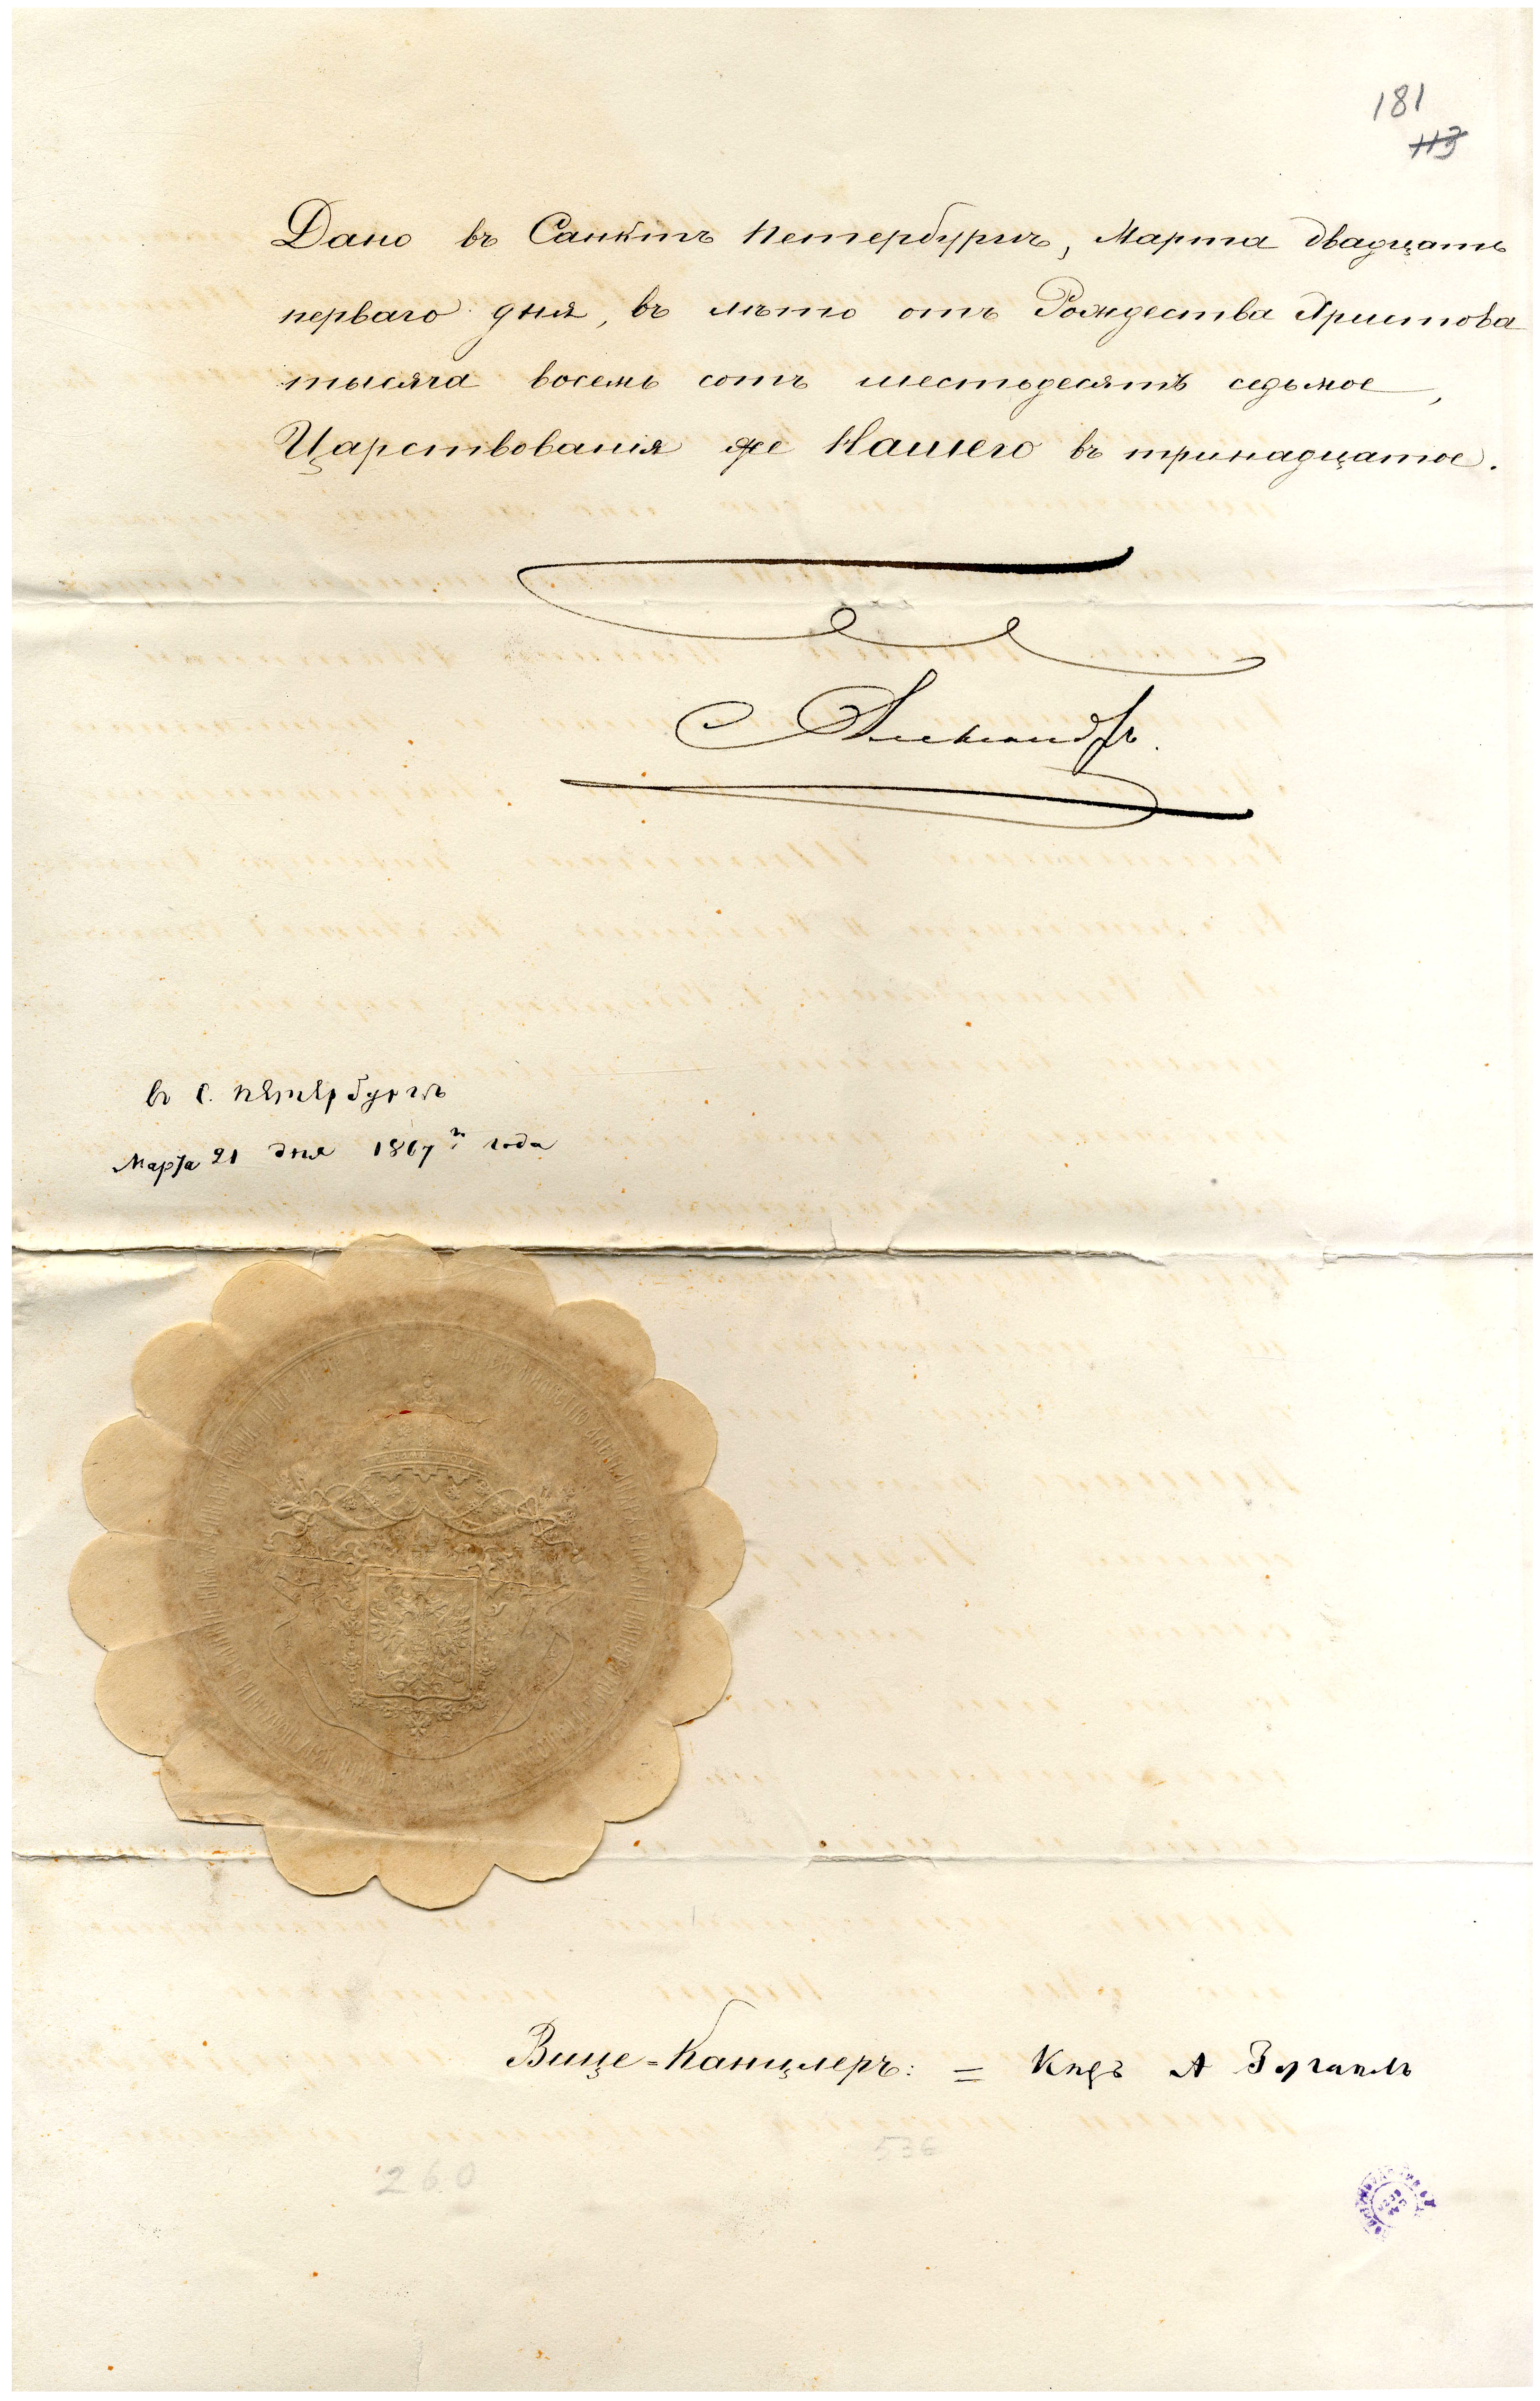 181
113
Дано въ Санктъ Петербургѣ, Марта двадцать
перваго дня, въ лѣто отъ Рождества Христова
тысяча восемь сотъ шестьдесятъ седьмое,
Царствованія же Нашего въ тринадцатое.
Александръ.
въ С. Петербургѣ
Марта 21 дня 1867 года
Вице=Канцлеръ: = Князь А
536
260